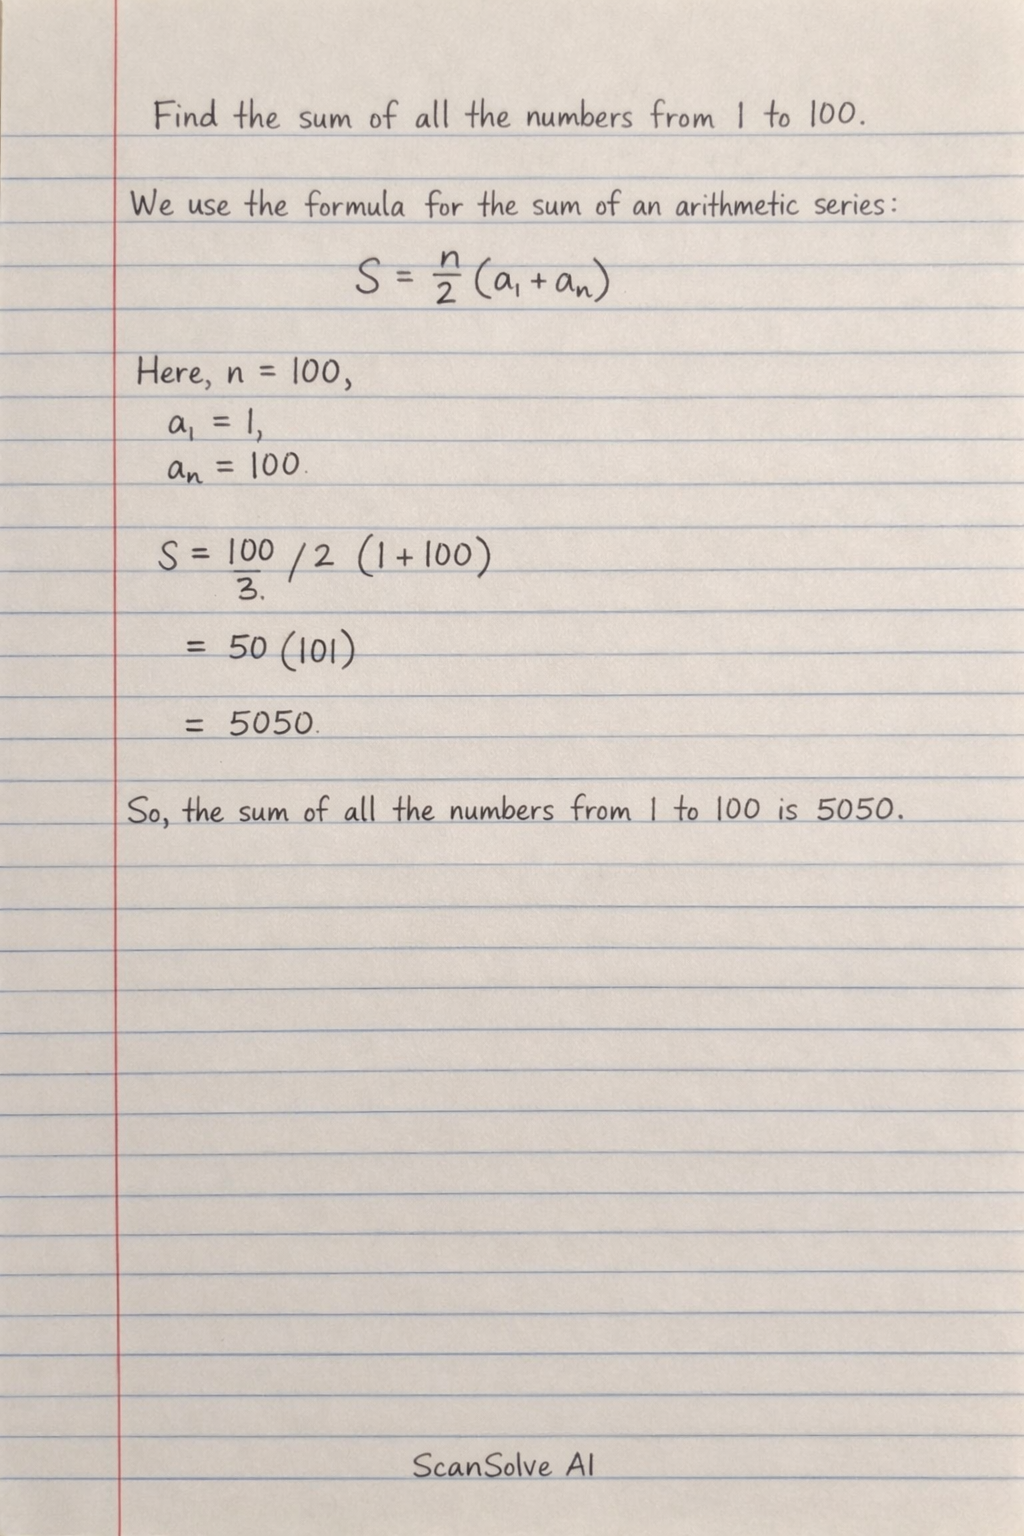 Find the sum of all the numbers from 1 to 100.
We use the formula for the sum of an arithmetic series:
S = n/2 (a₁ + aₙ)
Here, n = 100,
a₁ = 1,
aₙ = 100.
S = 100/3. / 2 (1 + 100)
= 50 (101)
= 5050.
So, the sum of all the numbers from 1 to 100 is 5050.
ScanSolve AI